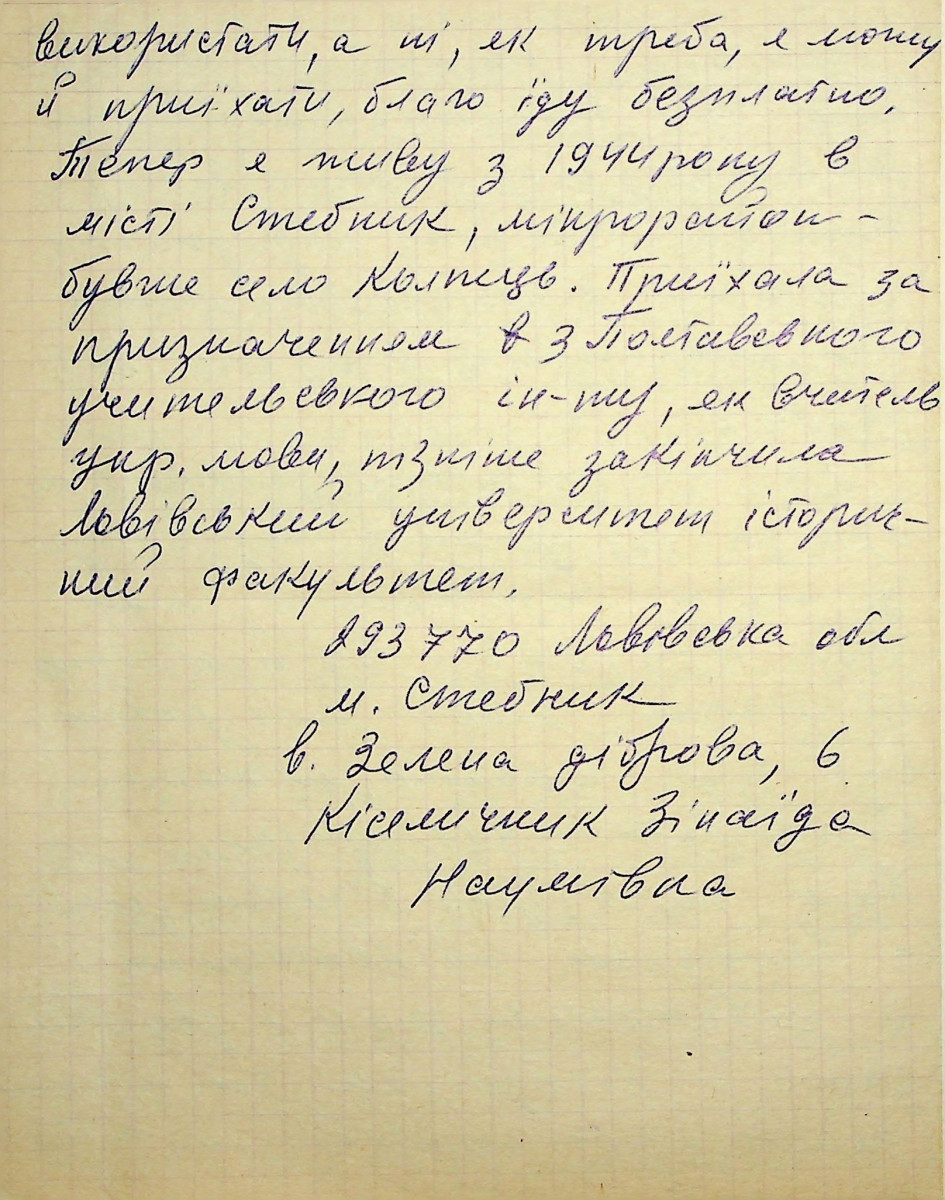 використати, а ні, як треба, я можу
й приїхати, благо їду безплатно.
Тепер я живу з 1944 року в
місті Стебник, мікрорайон -
бувше село Колпець. Приїхала за
призначенням з Полтавського
учительського ін-ту, як вчитель
укр. мови, пізніше закінчила
Львівський університет історич-
ний факультет.
293770 Львівська обл
м. Стебник
в. Зелена діброва, 6
Кісмичник Зінаїда
Наумівна